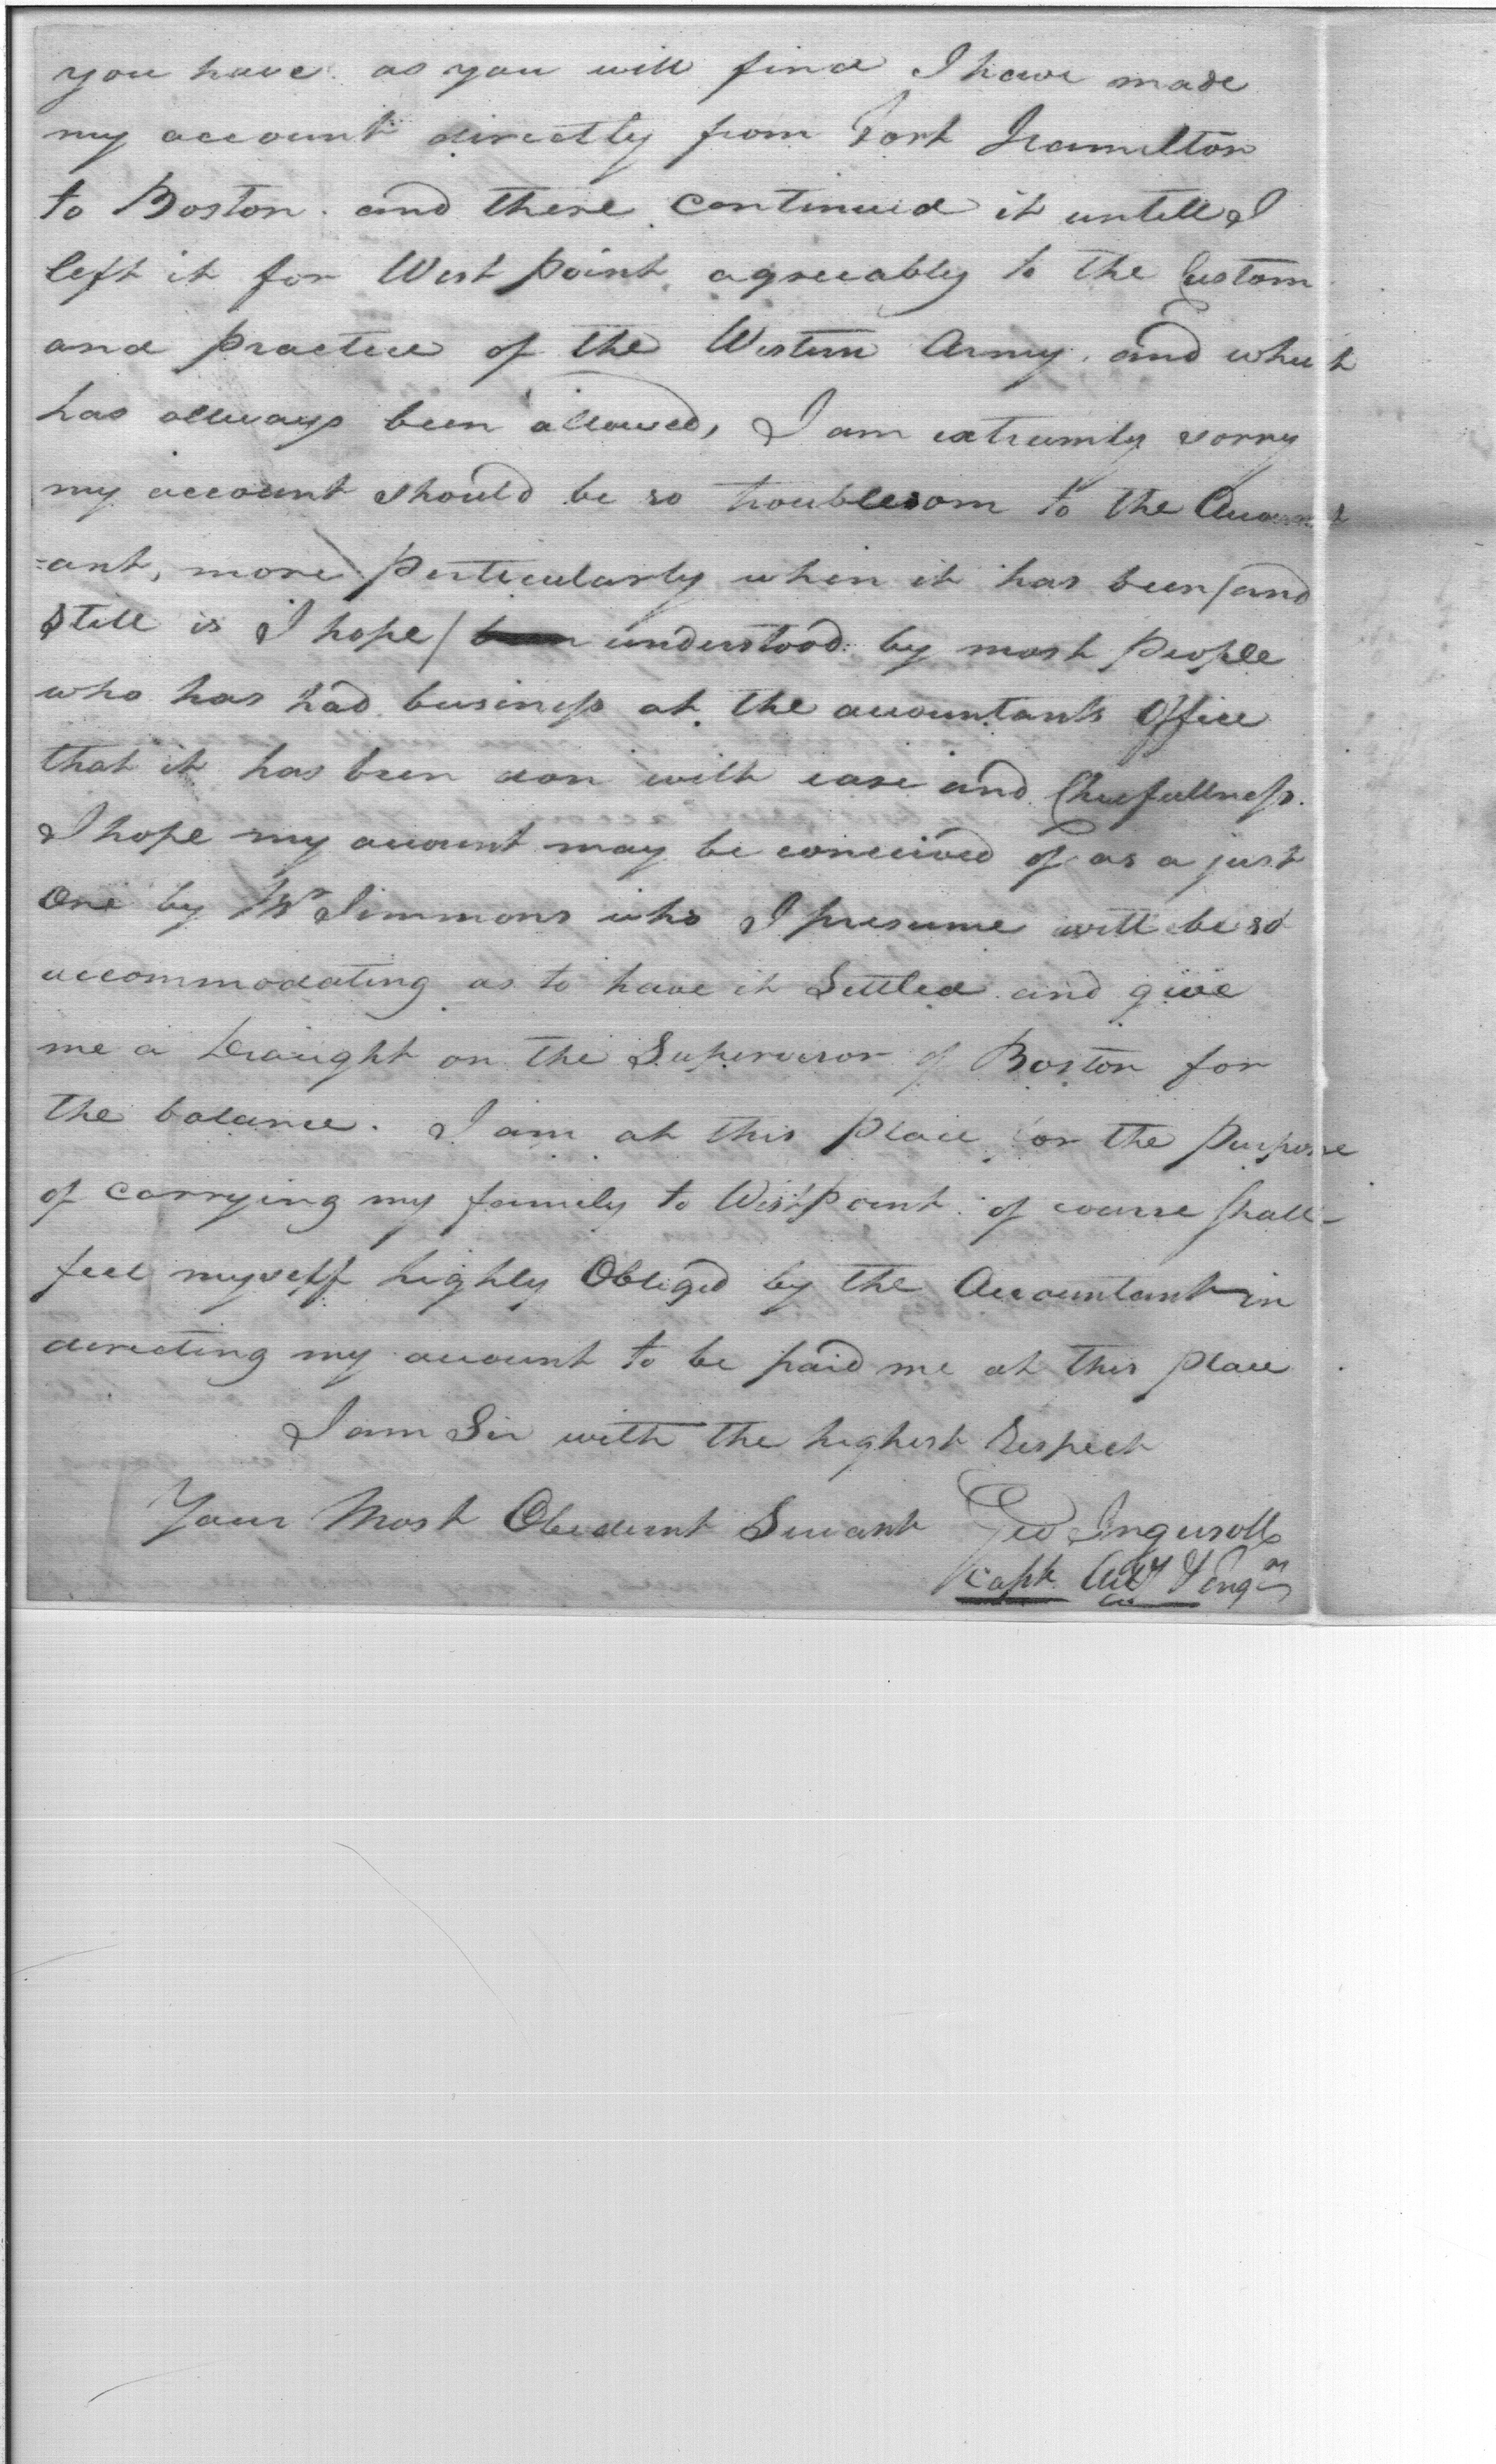 you have as you will find I have made
my account directly from Fort Hamilton
to Boston. and there continued it untill I
left it for West Point. agreeably to the Custom
and Practice of the Western Army. and what
has allways been allowed, I am extreemly sorry
my account should be so troublesom to the Account
=ant, more Perticularly when it has been/and
still is I hope/ been understood by most People
who has had business at the accountants Office
that it has been don with ease and Chearfullness.
I hope my account may be conceived of as a just
One by Mr Simmons who I presume will be so
accommodating as to have it Settled and give
me a Draught on the Supervisor of Boston for
the balance. I am at this Place for the Purpose
of carrying my family to West Point. of course shall
feel myself highly Obliged by the Accountant in
directing my account to be paid me at this Place
I am Sir with the highest Respect
Your Most Obedient Servant Geo Ingersoll
Capt. Arty & Engrs